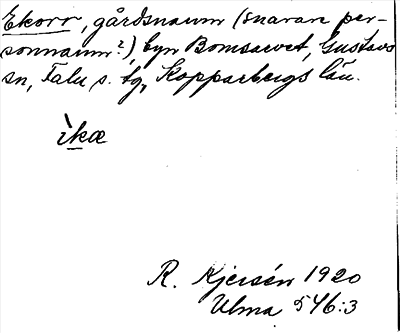 Ekorr, gårdsnamn (snaran per-
sonnamn?) byn Bomsarvet, Gustavs
sn, Falu s. tg, Kopparbergs län.
ìkæ
R. Kjersén 1920
Ulma 546:3